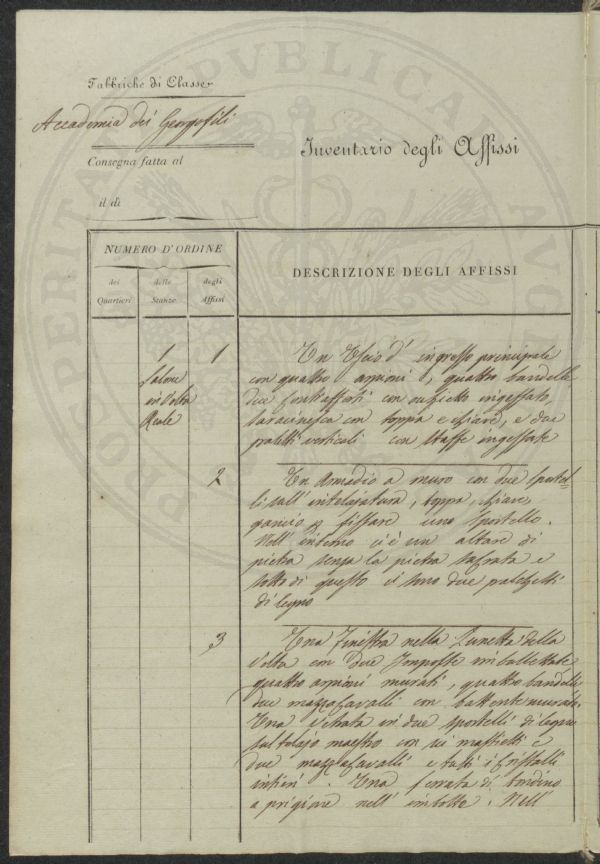 Fabbriche di Classe
Accademia dei Georgofili
Inventario degli Affissi
Consegna fatta al
il dì
NUMERO D'ORDINE
DESCRIZIONE DEGLI AFFISSI
dei Quartieri
delle Stanze
degli Affissi
1 1 Un Uscio d'ingresso principale
Salone con quattro arpioni, quattro bandelle
in Volta due contrafforti con occhietto ingessato
Reale saracinesca con toppa e chiave, e due
paletti verticali con staffe ingessate
2 Un Armadio a muro con due sportel-
li sull'intelajatura, toppa, chiave,
gancio p fissare uno sportello.
Nell'interno ci è un altare di
pietra senza la pietra sagrata e
sotto di questo vi sono due palchetti
di legno
3 Una Finestra nella Lunetta della
Volta con due Imposte imbullettate
quattro arpioni murati, quattro bandelle
due mazzacavalli con battente murato.
Una vetrata in due sportelli di legno
sul telajo maestro con sei mastietti e
due mazzacavalli e tutti i Cristalli
intieri. Una ferrata di tondino
a prigione nell'imbotte. Nell'